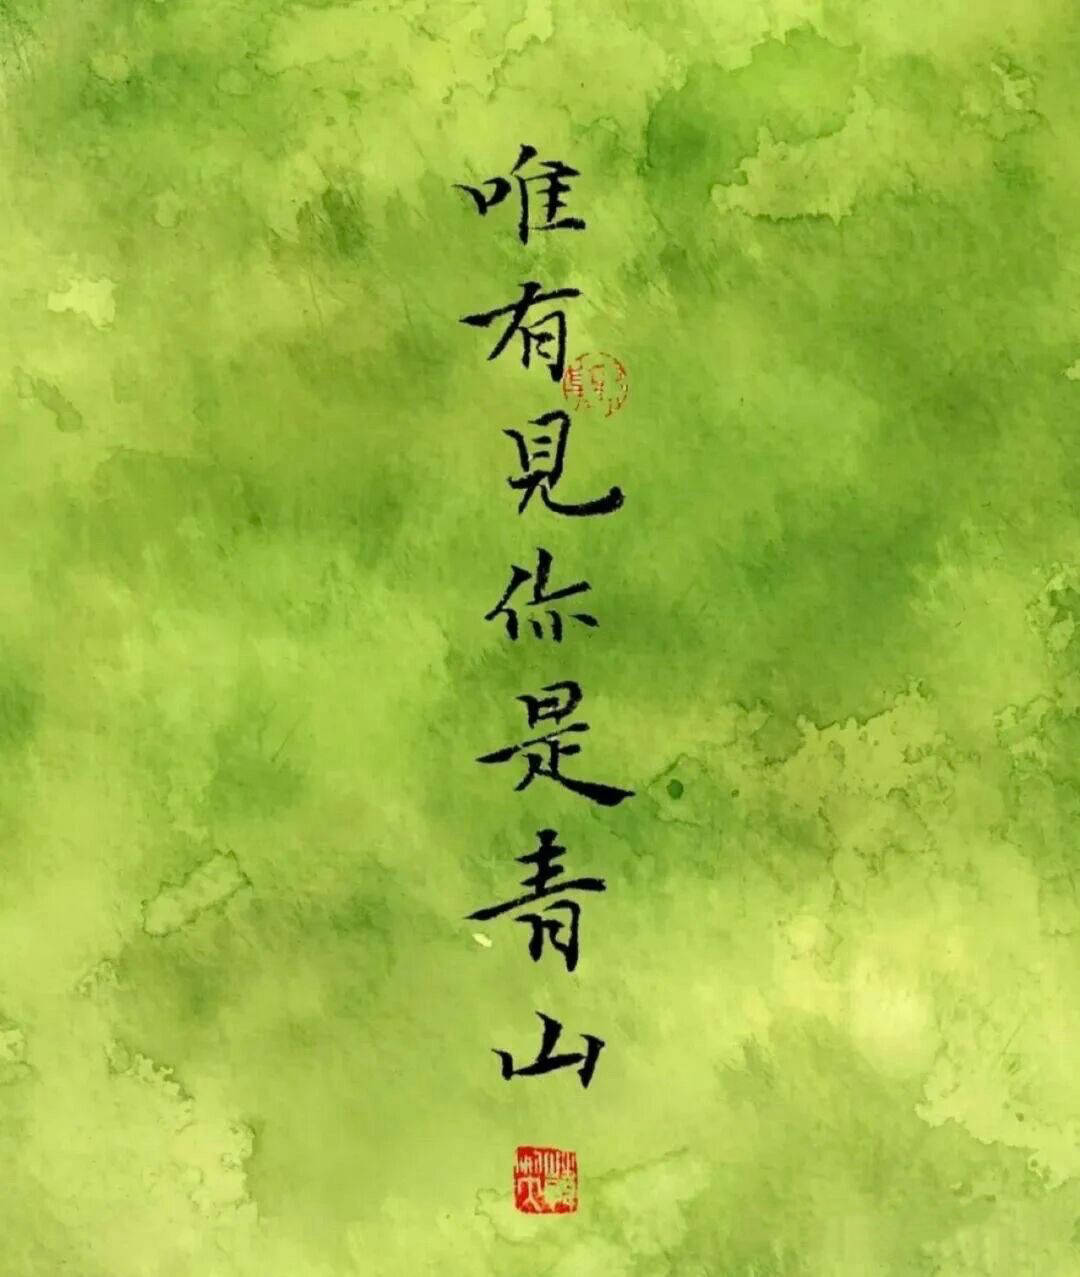 唯有見你是青山